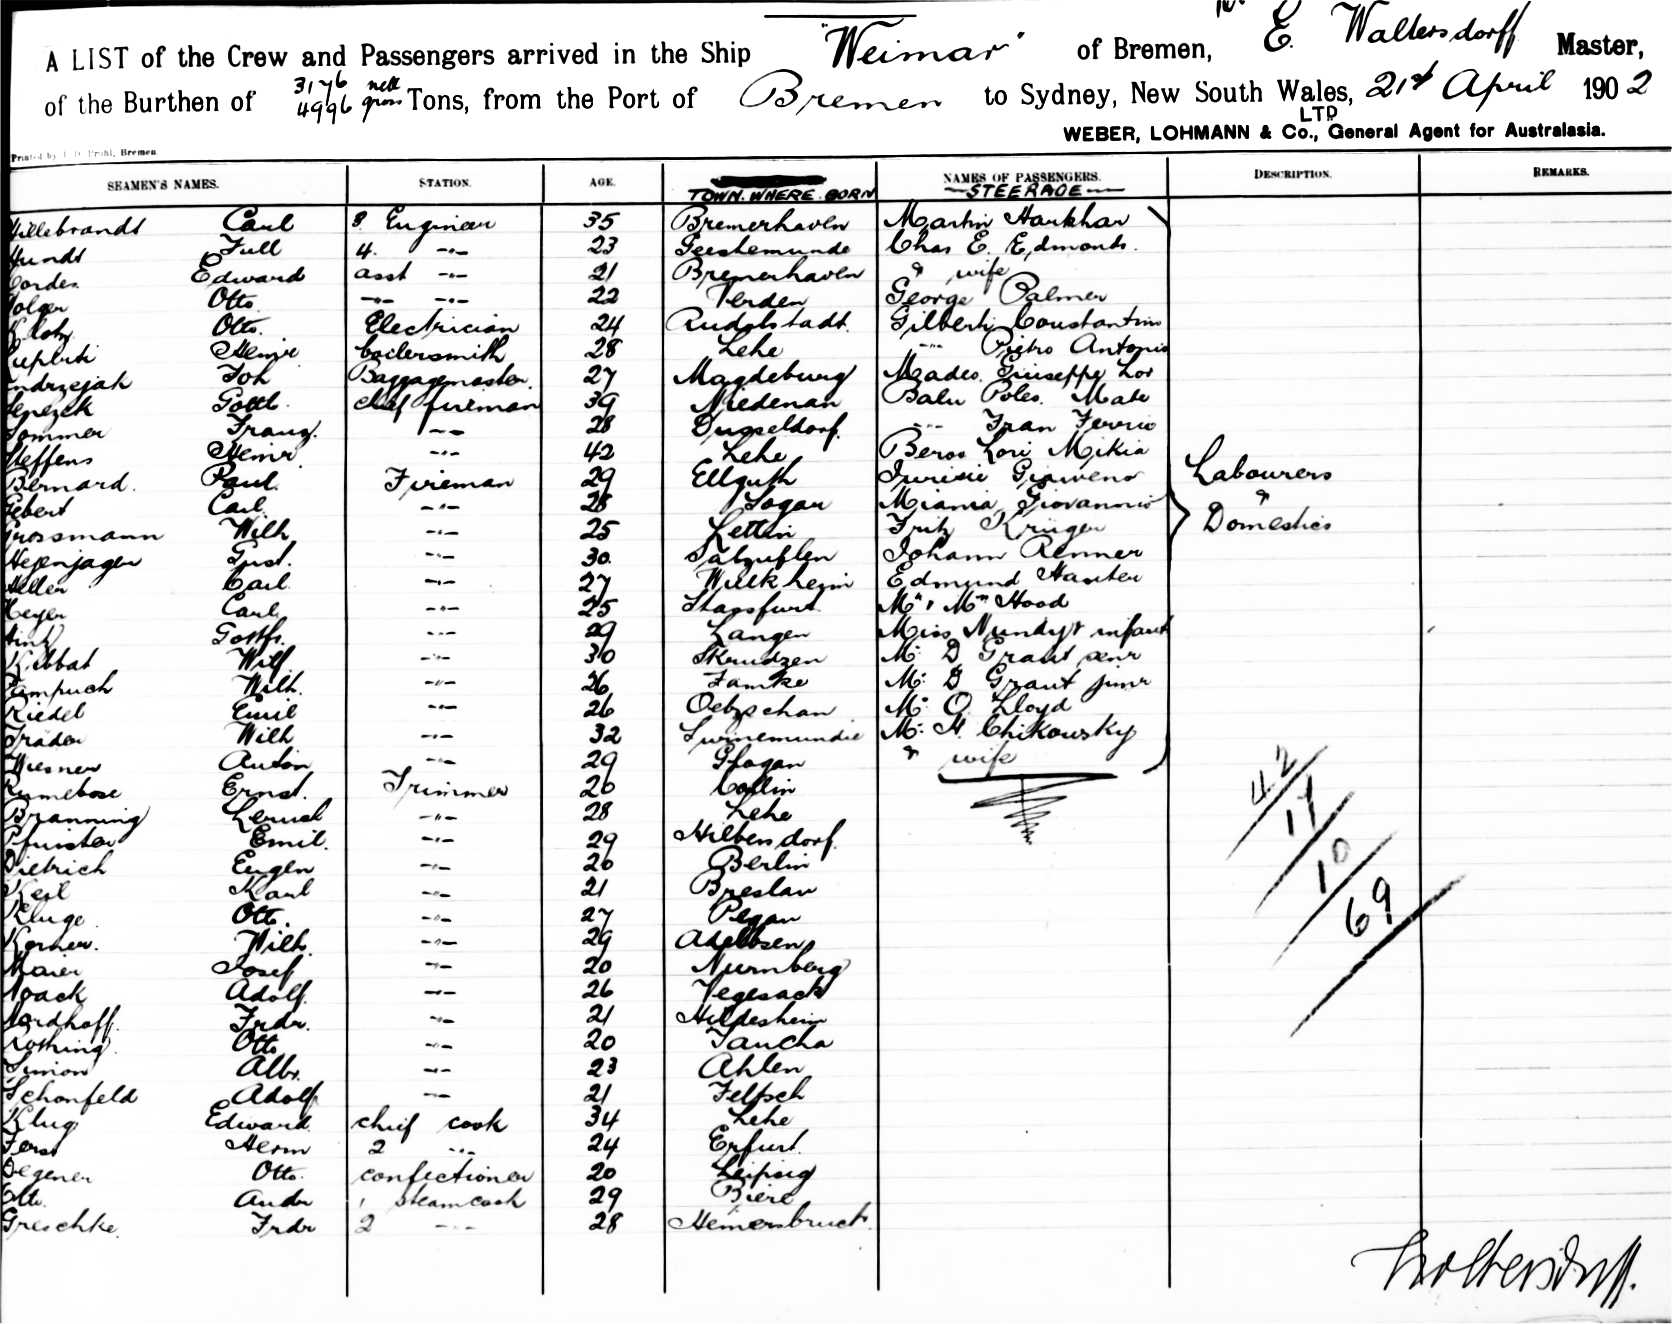 A LIST of the Crew and Passengers arrived in the Ship "Weimar" of Bremen, E. Waltersdorff Master,
of the Burthen of 3176 nett 4996 gross Tons, from the Port of Bremen to Sydney, New South Wales, 21st April 1902
WEBER, LOHMANN & Co., LTD General Agent for Australasia.
Printed by Bremen
SEAMEN'S NAMES. STATION. AGE. TOWN. WHERE. BORN NAMES OF PASSENGERS. STEERAGE DESCRIPTION. REMARKS.
Hillebrandt Carl 3. Engineer 35 Bremerhaven Martin
Hundt Full 4. -"- 23 Geestemunde Chas E. Edmonts.
Cordes Edward asst -"- 21 Bremerhaven " wife
Otto -"- -"- 22 Verden George Palmer
Klotz Otto. Electrician 24 Rudolstadt. Gilberti Constantin
Heinr boilersmith 28 Lehe -"- Pietro Antonio
Andrzejak Joh Baggagemaster. 27 Magdeburg Giuseppe
Gottl. chief fireman 39 Niedenau Mate
Sommer Franz. -"- 28 Dusseldorf. -"- Ivan
Steffens Heinr. -"- 42 Lehe Beros Mikia
Bernard. Paul. Fireman 29 Ellguth Labourers
Gebert Carl. -"- 28 Sagan Giovannio "
Grossmann Wilh -"- 25 Lettin Fritz Krüger Domestics
Hegenjager Gust. -"- 30. Salzuflen Johann Renner
Heller Carl -"- 27 Edmund
Heyer Carl, -"- 25 Stassfurt. Mr & Mrs Hood
Gottfr. -"- 29 Langen Miss Nundy & infant
Kibbat Wilh. -"- 30 Skrudzen Mr. D Grant senr
Kampuch Wilh. -"- 26 Mr. D Grant junr
Riedel Emil -"- 26 Oetzschan Mr O. Lloyd
Trader Wilh -"- 32 Swinemunde Mr. H. Chikowsky
Wiesner Anton -"- 29 Glogau " wife
Ernst. Trimmer 20 Collin
Branning -"- 28 Lehe
Emil. -"- 29 Hilbersdorf.
Dietrich Eugen -"- 20 Berlin
Keil Karl -"- 21 Breslau
Kluge Otto. -"- 27 Pegau
Korner. Wilh. -"- 29 Adelebsen
Maier Josef -"- 20 Nurnberg
Noack Adolf. -"- 26 Vegesack
Nordhoff. Frdr. -"- 21 Hildesheim
Rothing. Otto -"- 20 Taucha
Simon Albr. -"- 23 Ahlen
Schonfeld Adolf -"- 21
Klug Edward. chief cook 34 Lehe
Herm 2 -"- 24 Erfurt.
Degener Otto. confectioner 20 Leipzig
Otto. Andr 1 steamcook 29 Biere
Greschke. Frdr 2 -"- 28
42
17
10
69
Woltersdorff.